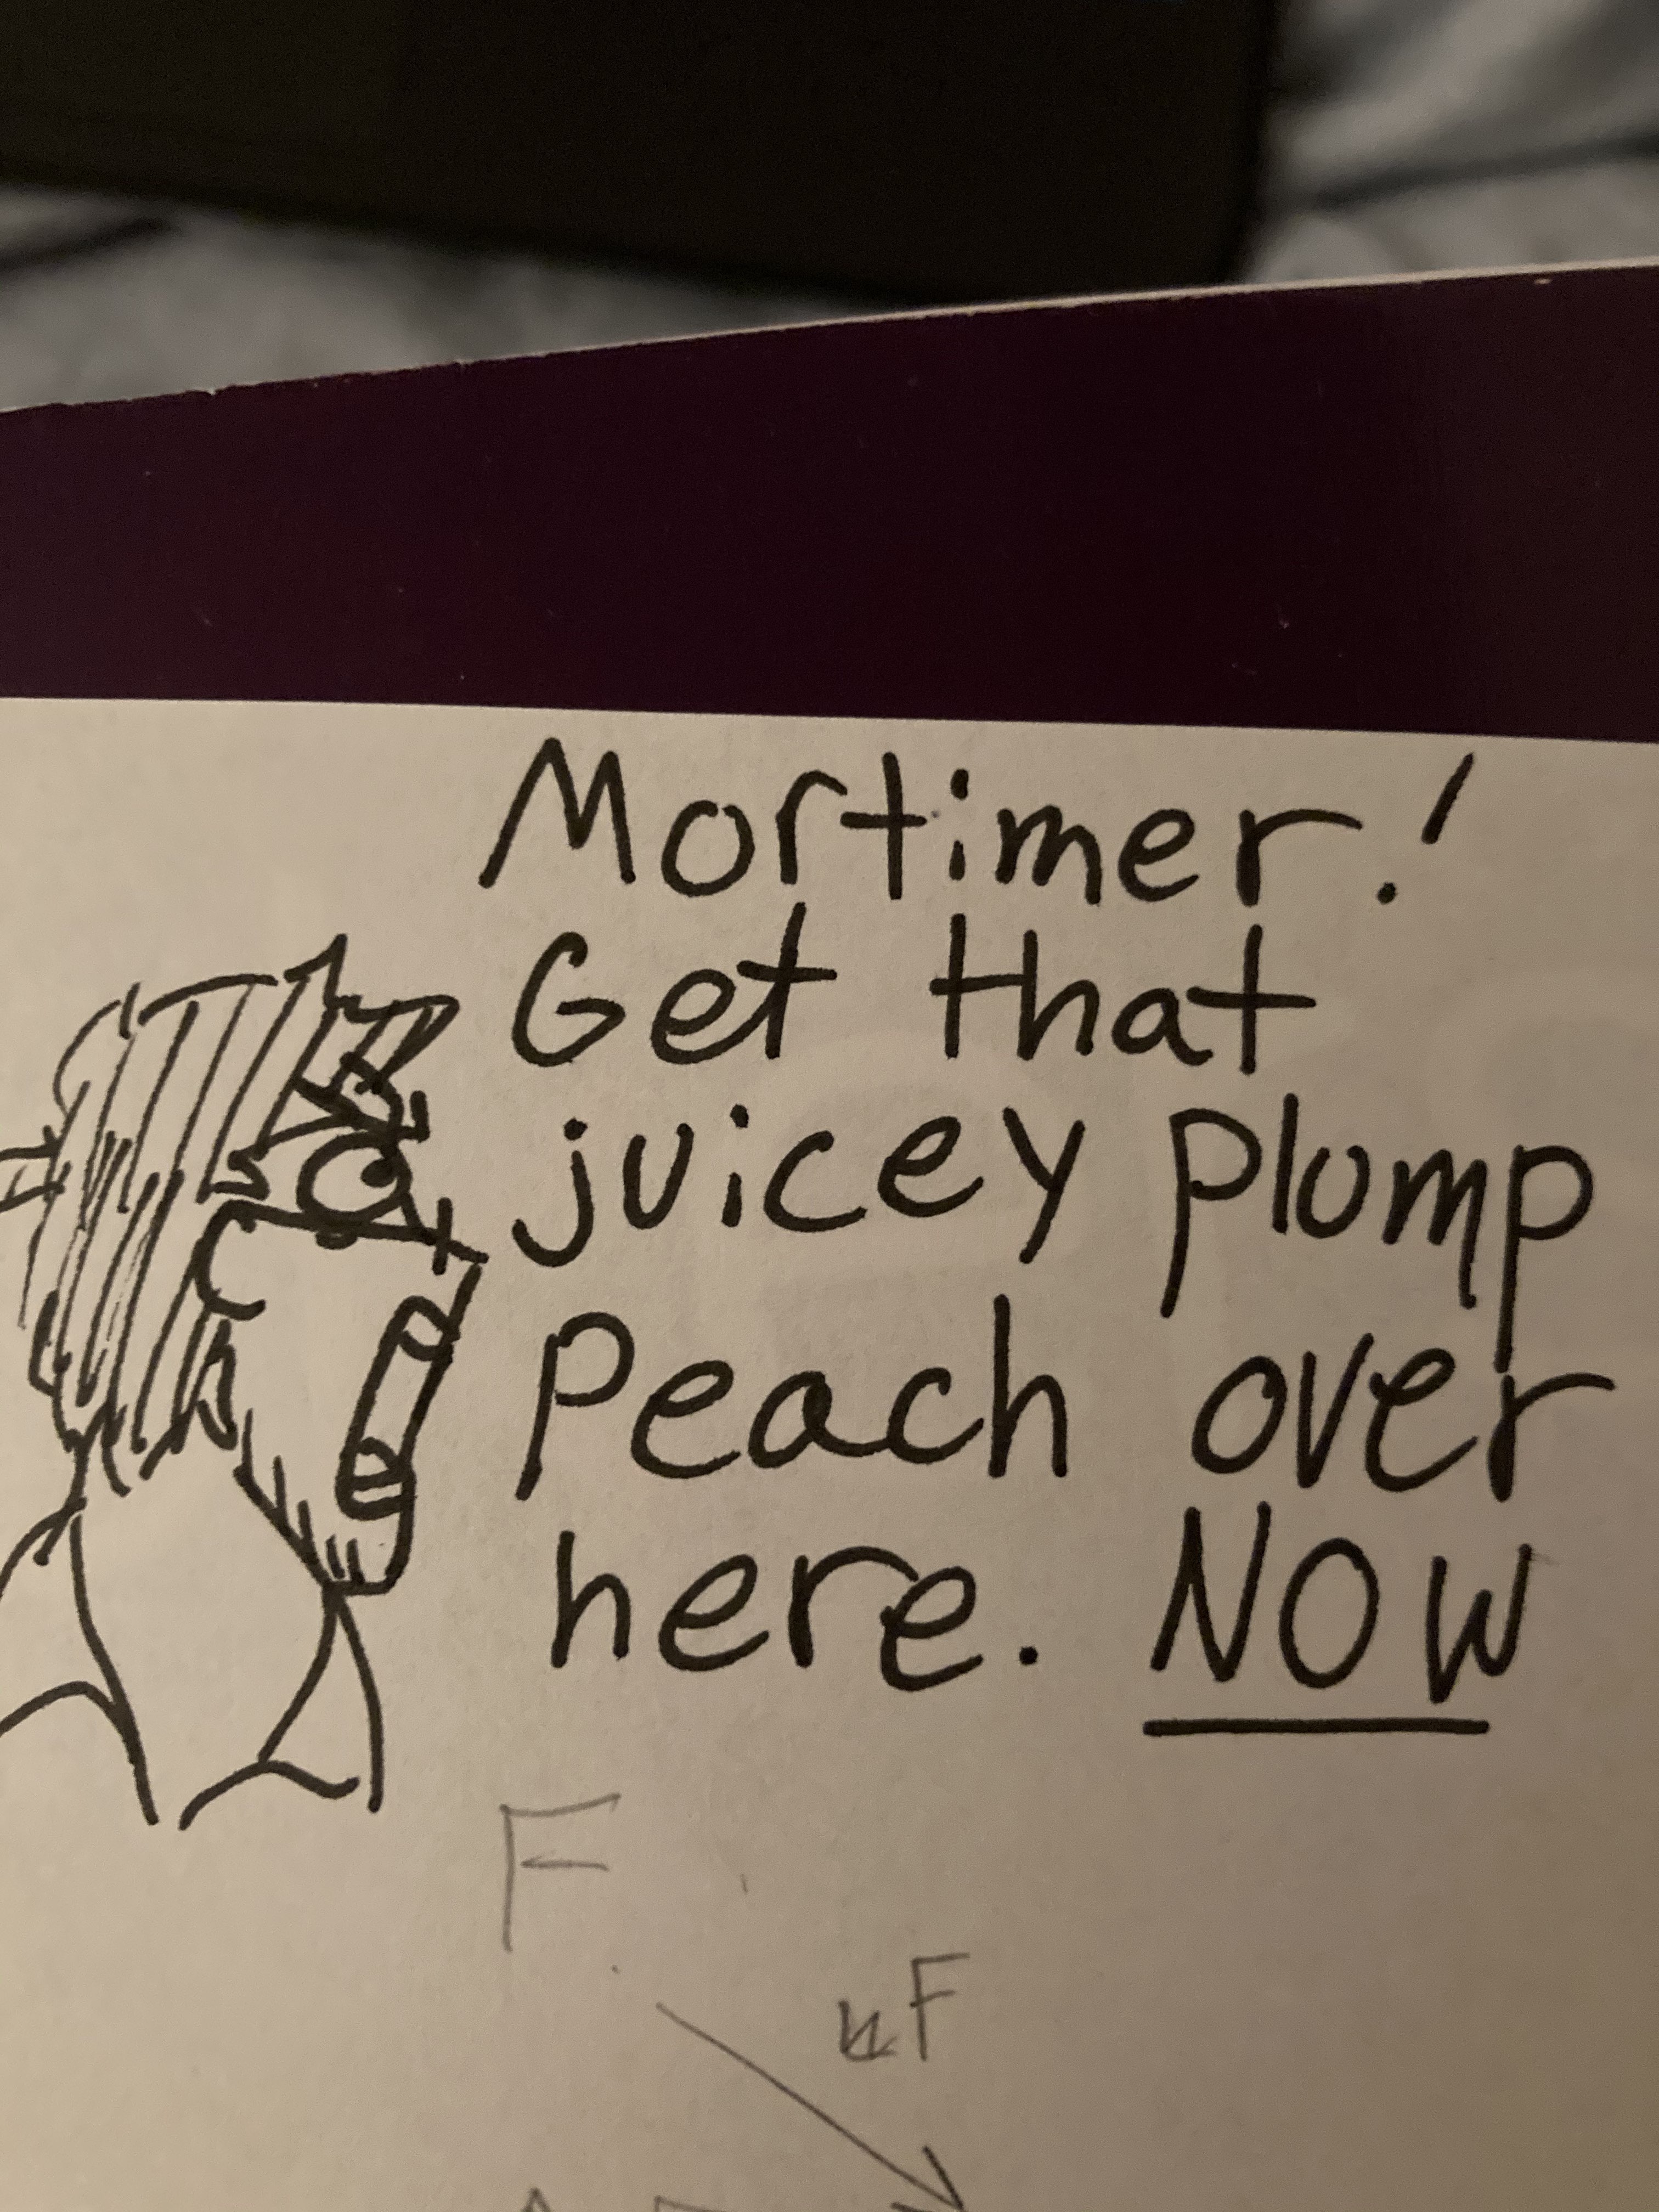 Mortimer!
Get that
juicey plump
Peach over
here. NOW
F
F